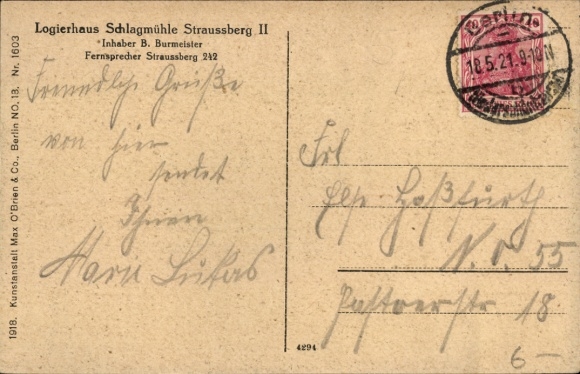 Logierhaus Schlagmühle Straussberg II
Inhaber B. Burmeister
Fernsprecher Straussberg 242
Freundliche Grüße
von hier
sendet
Ihnen
Lukas
1918. Kunstanstalt Max O'Brien & Co., Berlin NO. 18. Nr. 1603
4294
Berlin
18.5.21. 9-10 N
Frl
Else
N. O. 55
Pasteurstr 18
6-